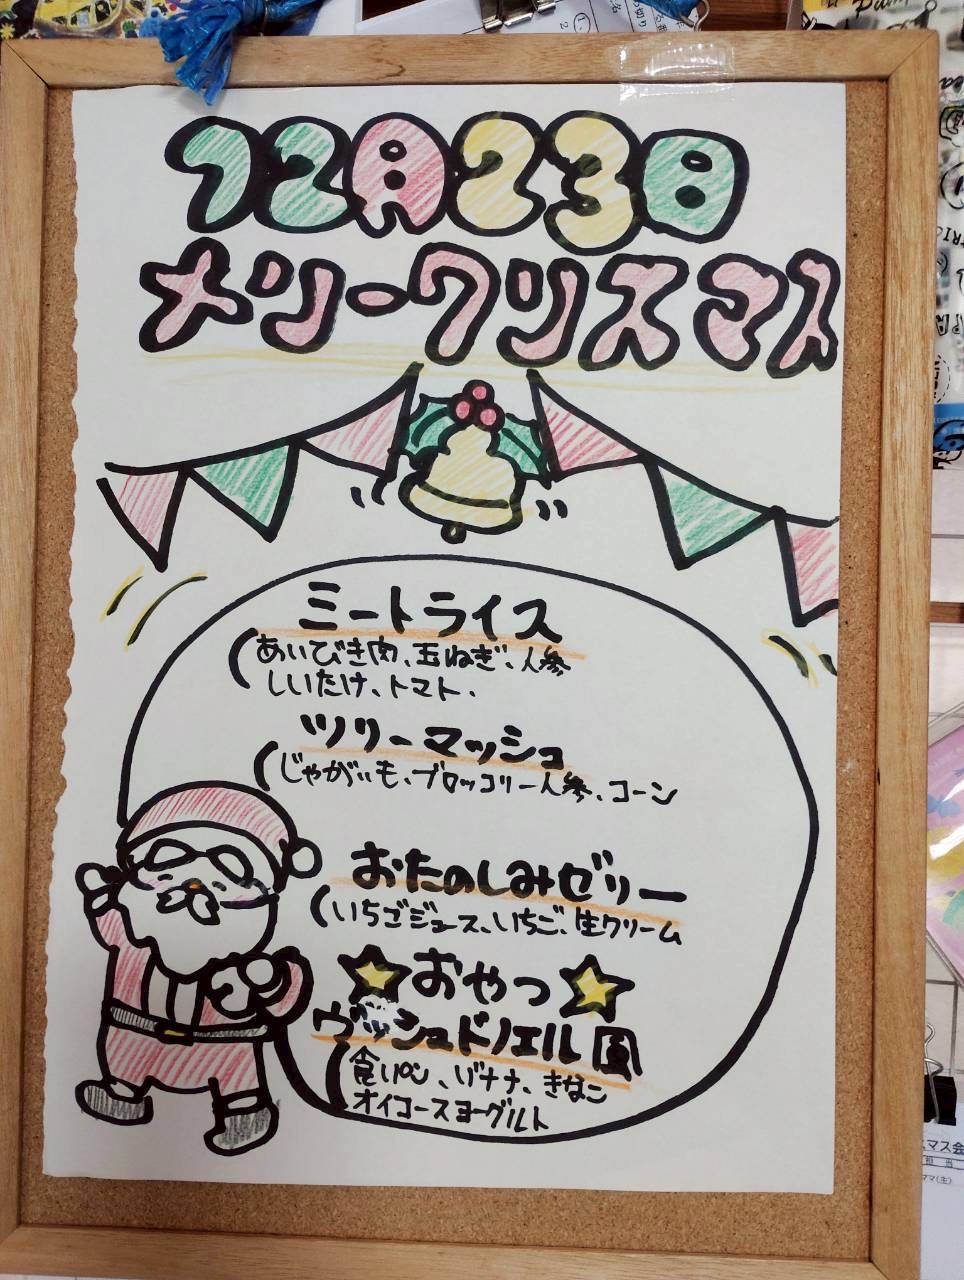 12月23日
メリークリスマス
ミートライス
(あいびき肉、玉ねぎ、人参
しいたけ、トマト、
ツリーマッシュ
(じゃがいも、ブロッコリー人参、コーン
おたのしみゼリー
(いちごジュース、いちご、生クリーム
★おやつ★
ヴッシュドノエル風
(食パン、バナナ、きなこ
オイコースヨーグルト